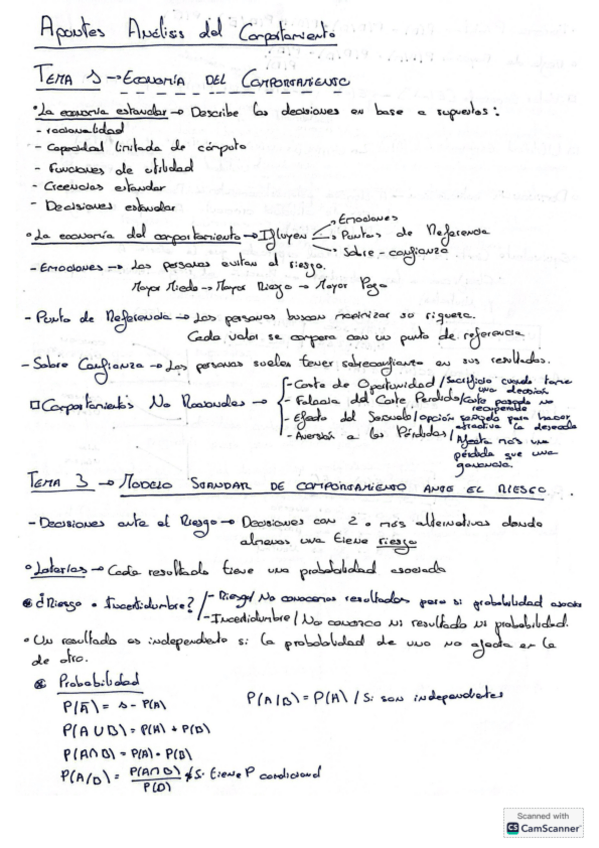 Apuntes Análisis del Comportamiento
TEMA 1 → ECONOMÍA DEL COMPORTAMIENTO
• La economía estandar → Describe las decisiones en base a supuestos:
- racionalidad
- Capacidad limitada de cómputo
- Funciones de utilidad
- Creencias estandar
- Decisiones estandar
• La economía del comportamiento → Influyen
Emociones
Puntos de Referencia
Sobre-confianza
- Emociones → Las personas evitan el riesgo.
Mayor Miedo → Mayor Riesgo → Mayor Pago
- Punto de Referencia → Las personas buscan maximizar su riqueza.
Cada valor se compara con un punto de referencia
- Sobre Confianza → Las personas suelen tener sobreconfianza en sus resultados.
□ Comportamientos No Racionales →
- Coste de Oportunidad / Sacrificio cuando tome una decisión
- Falacia del Coste Perdido / Coste pasado no recuperado
- Efecto del Señuelo / opción señuelo para hacer atractiva la deseada
- Aversión a las Pérdidas / Afecta más una pérdida que una ganancia.
TEMA 3 → MODELO STANDAR DE COMPORTAMIENTO ANTE EL RIESGO
- Decisiones ante el Riesgo → Decisiones con 2 o más alternativas donde
almenos una tiene riesgo
• Loterías → Cada resultado tiene una probabilidad asociada
¿Riesgo o Incertidumbre?
- Riesgo / No conocemos resultados pero si probabilidad asociada
- Incertidumbre / No conozco ni resultado ni probabilidad.
• Un resultado es independiente si la probabilidad de uno no afecta en la
de otro.
Probabilidad
P(Ā) = 1 - P(A)
P(A/B) = P(A) / Si son independientes
P(A∪B) = P(A) + P(B)
P(A∩B) = P(A) · P(B)
P(A/B) = P(A∩B) / P(B) / Si tiene P condicional
Scanned with
CS CamScanner